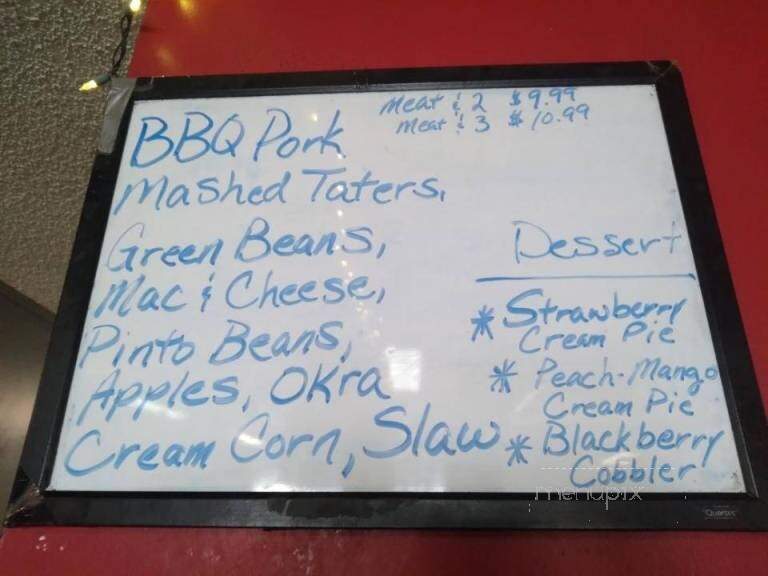 Meat & 2 $9.99
Meat & 3 $10.99
BBQ Pork
Mashed Taters,
Green Beans,
Mac & Cheese,
Pinto Beans,
Apples, Okra
Cream Corn, Slaw
Dessert
* Strawberry
Cream Pie
* Peach-Mango
Cream Pie
* Blackberry
Cobbler
menupix
"Quartet"